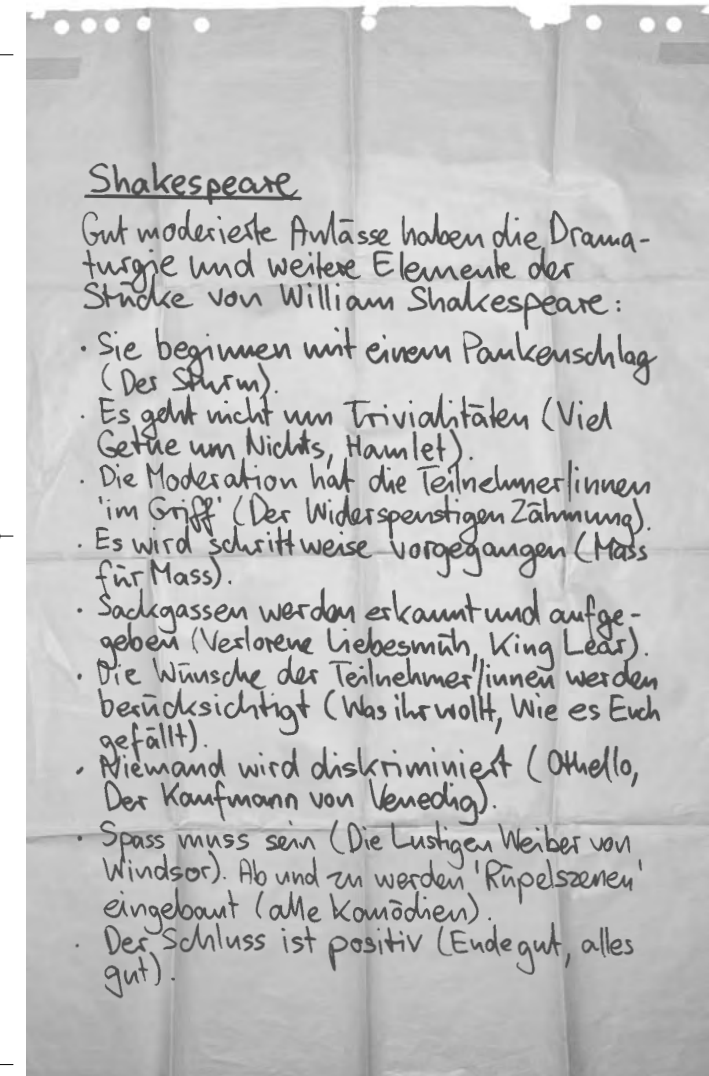 Shakespeare
Gut moderierte Anlässe haben die Drama-
turgie und weitere Elemente der
Stücke von William Shakespeare:
· Sie beginnen mit einem Paukenschlag
(Der Sturm).
· Es geht nicht um Trivialitäten (Viel
Getue um Nichts, Hamlet).
· Die Moderation hat die Teilnehmer/innen
'im Griff' (Der Widerspenstigen Zähmung).
· Es wird schrittweise vorgegangen (Mass
für Mass).
· Sackgassen werden erkannt und aufge-
geben (Verlorene Liebesmüh, King Lear).
· Die Wünsche der Teilnehmer/innen werden
berücksichtigt (Was ihr wollt, Wie es Euch
gefällt).
· Niemand wird diskriminiert (Othello,
Der Kaufmann von Venedig).
· Spass muss sein (Die Lustigen Weiber von
Windsor). Ab und zu werden 'Rüpelszenen'
eingebaut (alle Komödien).
· Der Schluss ist positiv (Ende gut, alles
gut).